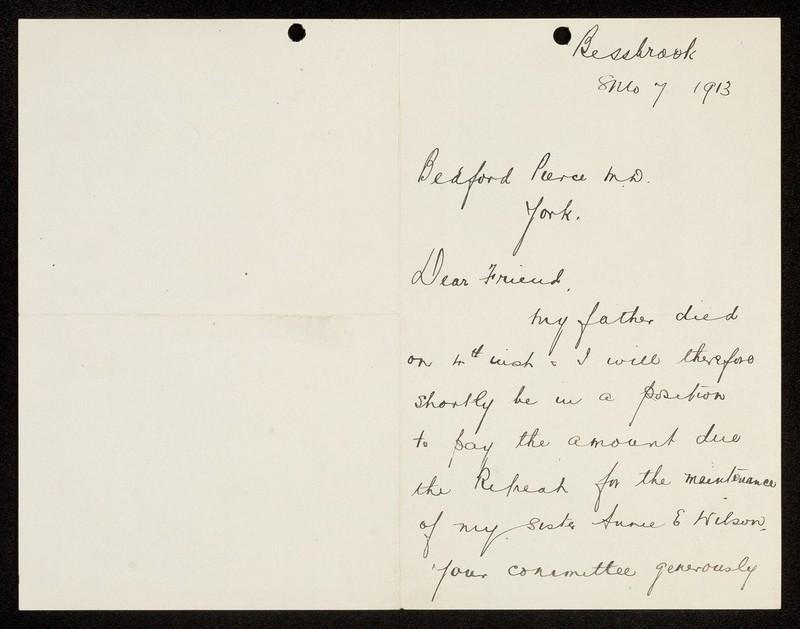 Bessbrook
8Mo 7 1913
Bedford Pierce M.D.
York.
Dear Friend,
My father died
on 4th inst & I will therefore
shortly be in a position
to pay the amount due
the Retreat for the maintenance
of my sister Annie E Wilson.
Your committee generously